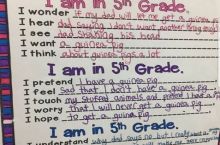 I am in 5th Grade.
I wonder if my dad will let me get a guinea pig
I hear dad saying I don't want another
I see dad shaking his head
I want a guinea pig.
I think about guinea pigs a lot
I am in 5th Grade.
I pretend I have a guinea pig.
I feel sad that I don't have a guinea pig
I touch my stuffed animals and pretend I have a
I worry that I will never get a guinea pig.
I hope to get a guinea pig.
I am in 5th Grade.
I understand why dad says no but I really